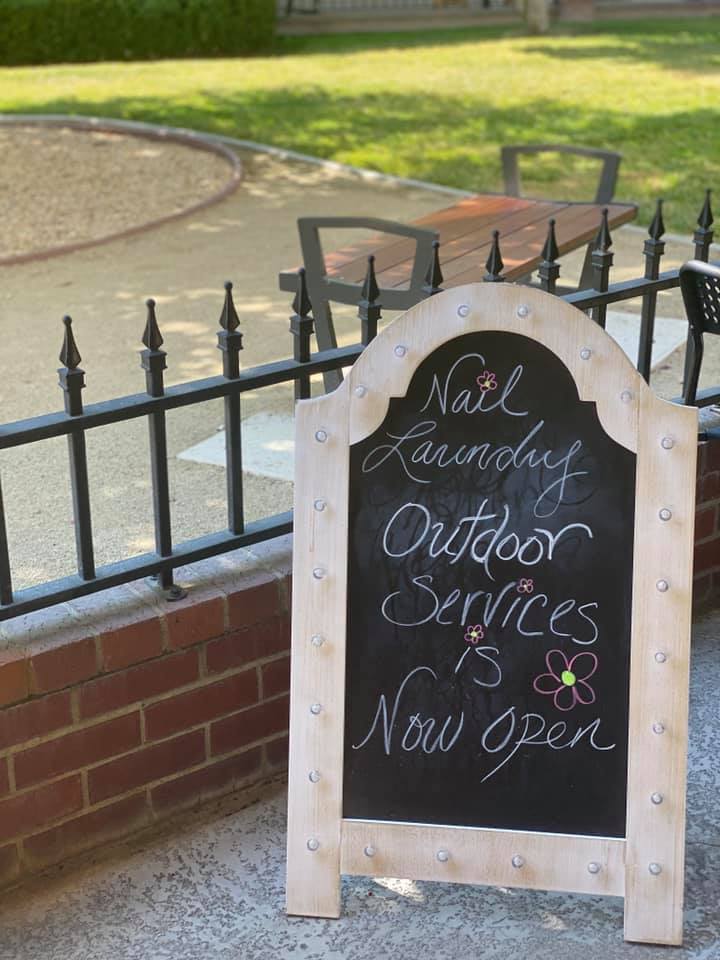 Nail
Laundry
Outdoor
Services
is
Now Open